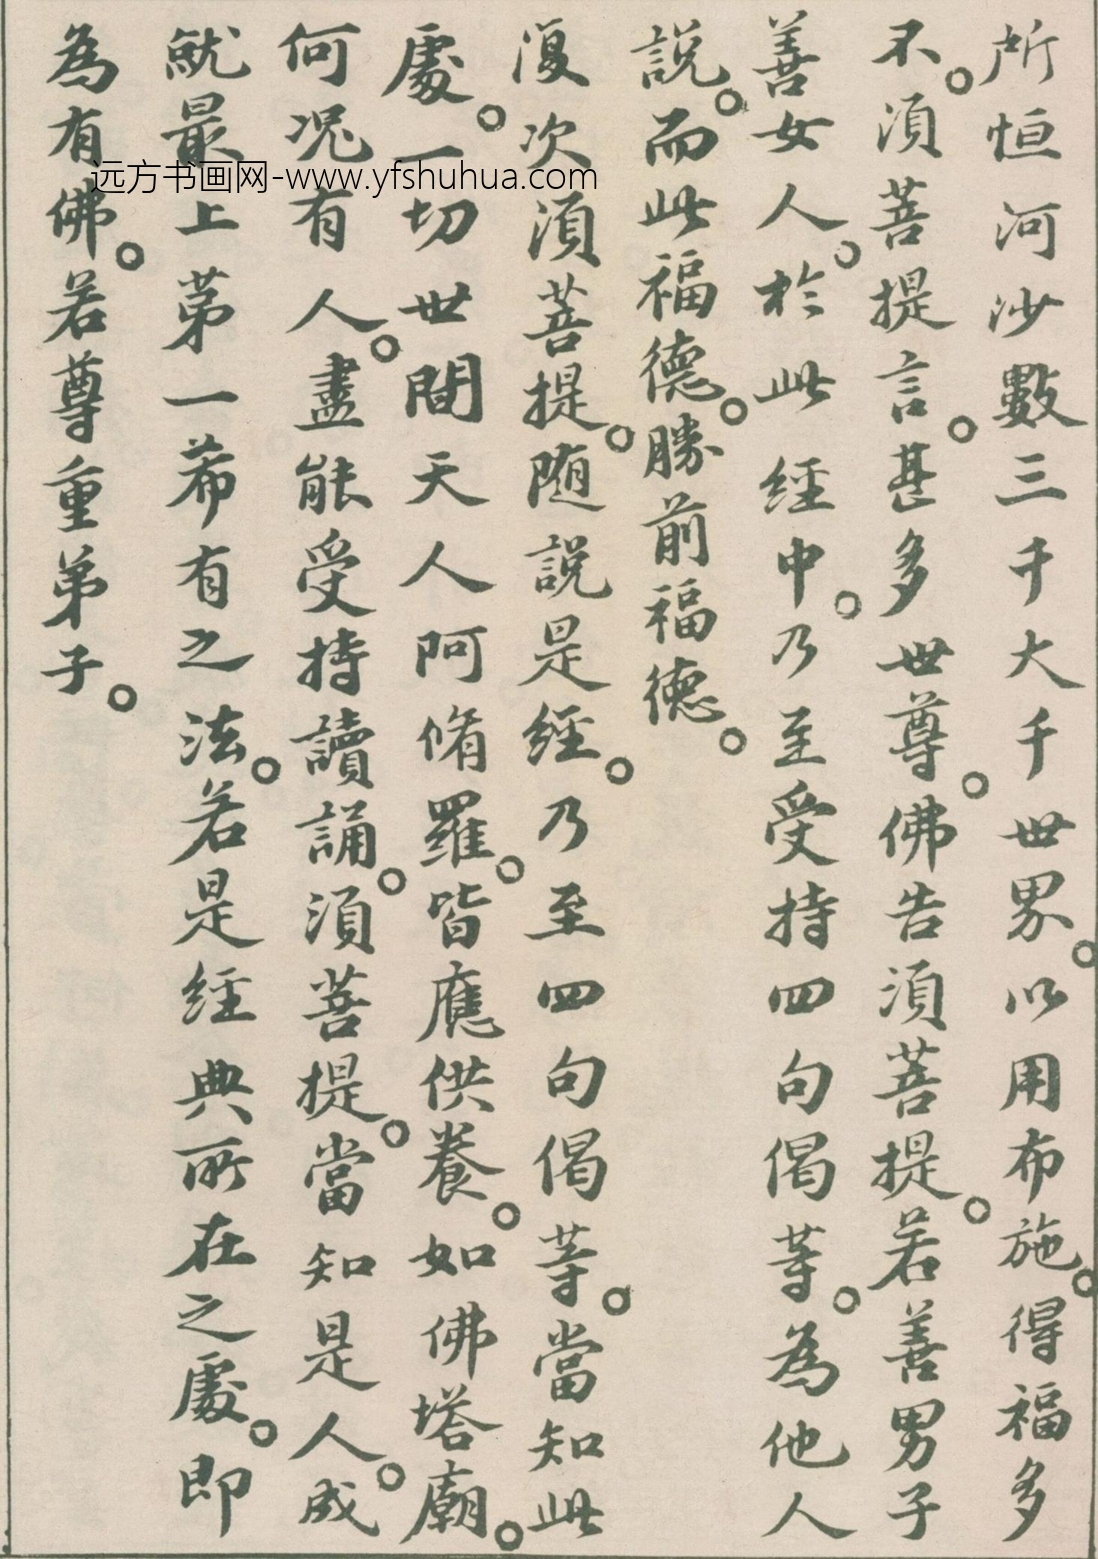 所恒河沙數三千大千世界。以用布施。得福多
不。須菩提言。甚多世尊。佛告須菩提。若善男子
善女人。於此經中。乃至受持四句偈等。為他人
說。而此福德。勝前福德。
復次須菩提。随說是經。乃至四句偈等。當知此
處。一切世間天人阿脩羅。皆應供養。如佛塔廟。
何况有人。盡能受持讀誦。須菩提。當知是人。成
就最上苐一希有之法。若是經典所在之處。即
為有佛。若尊重弟子。
远方书画网-www.yfshuhua.com